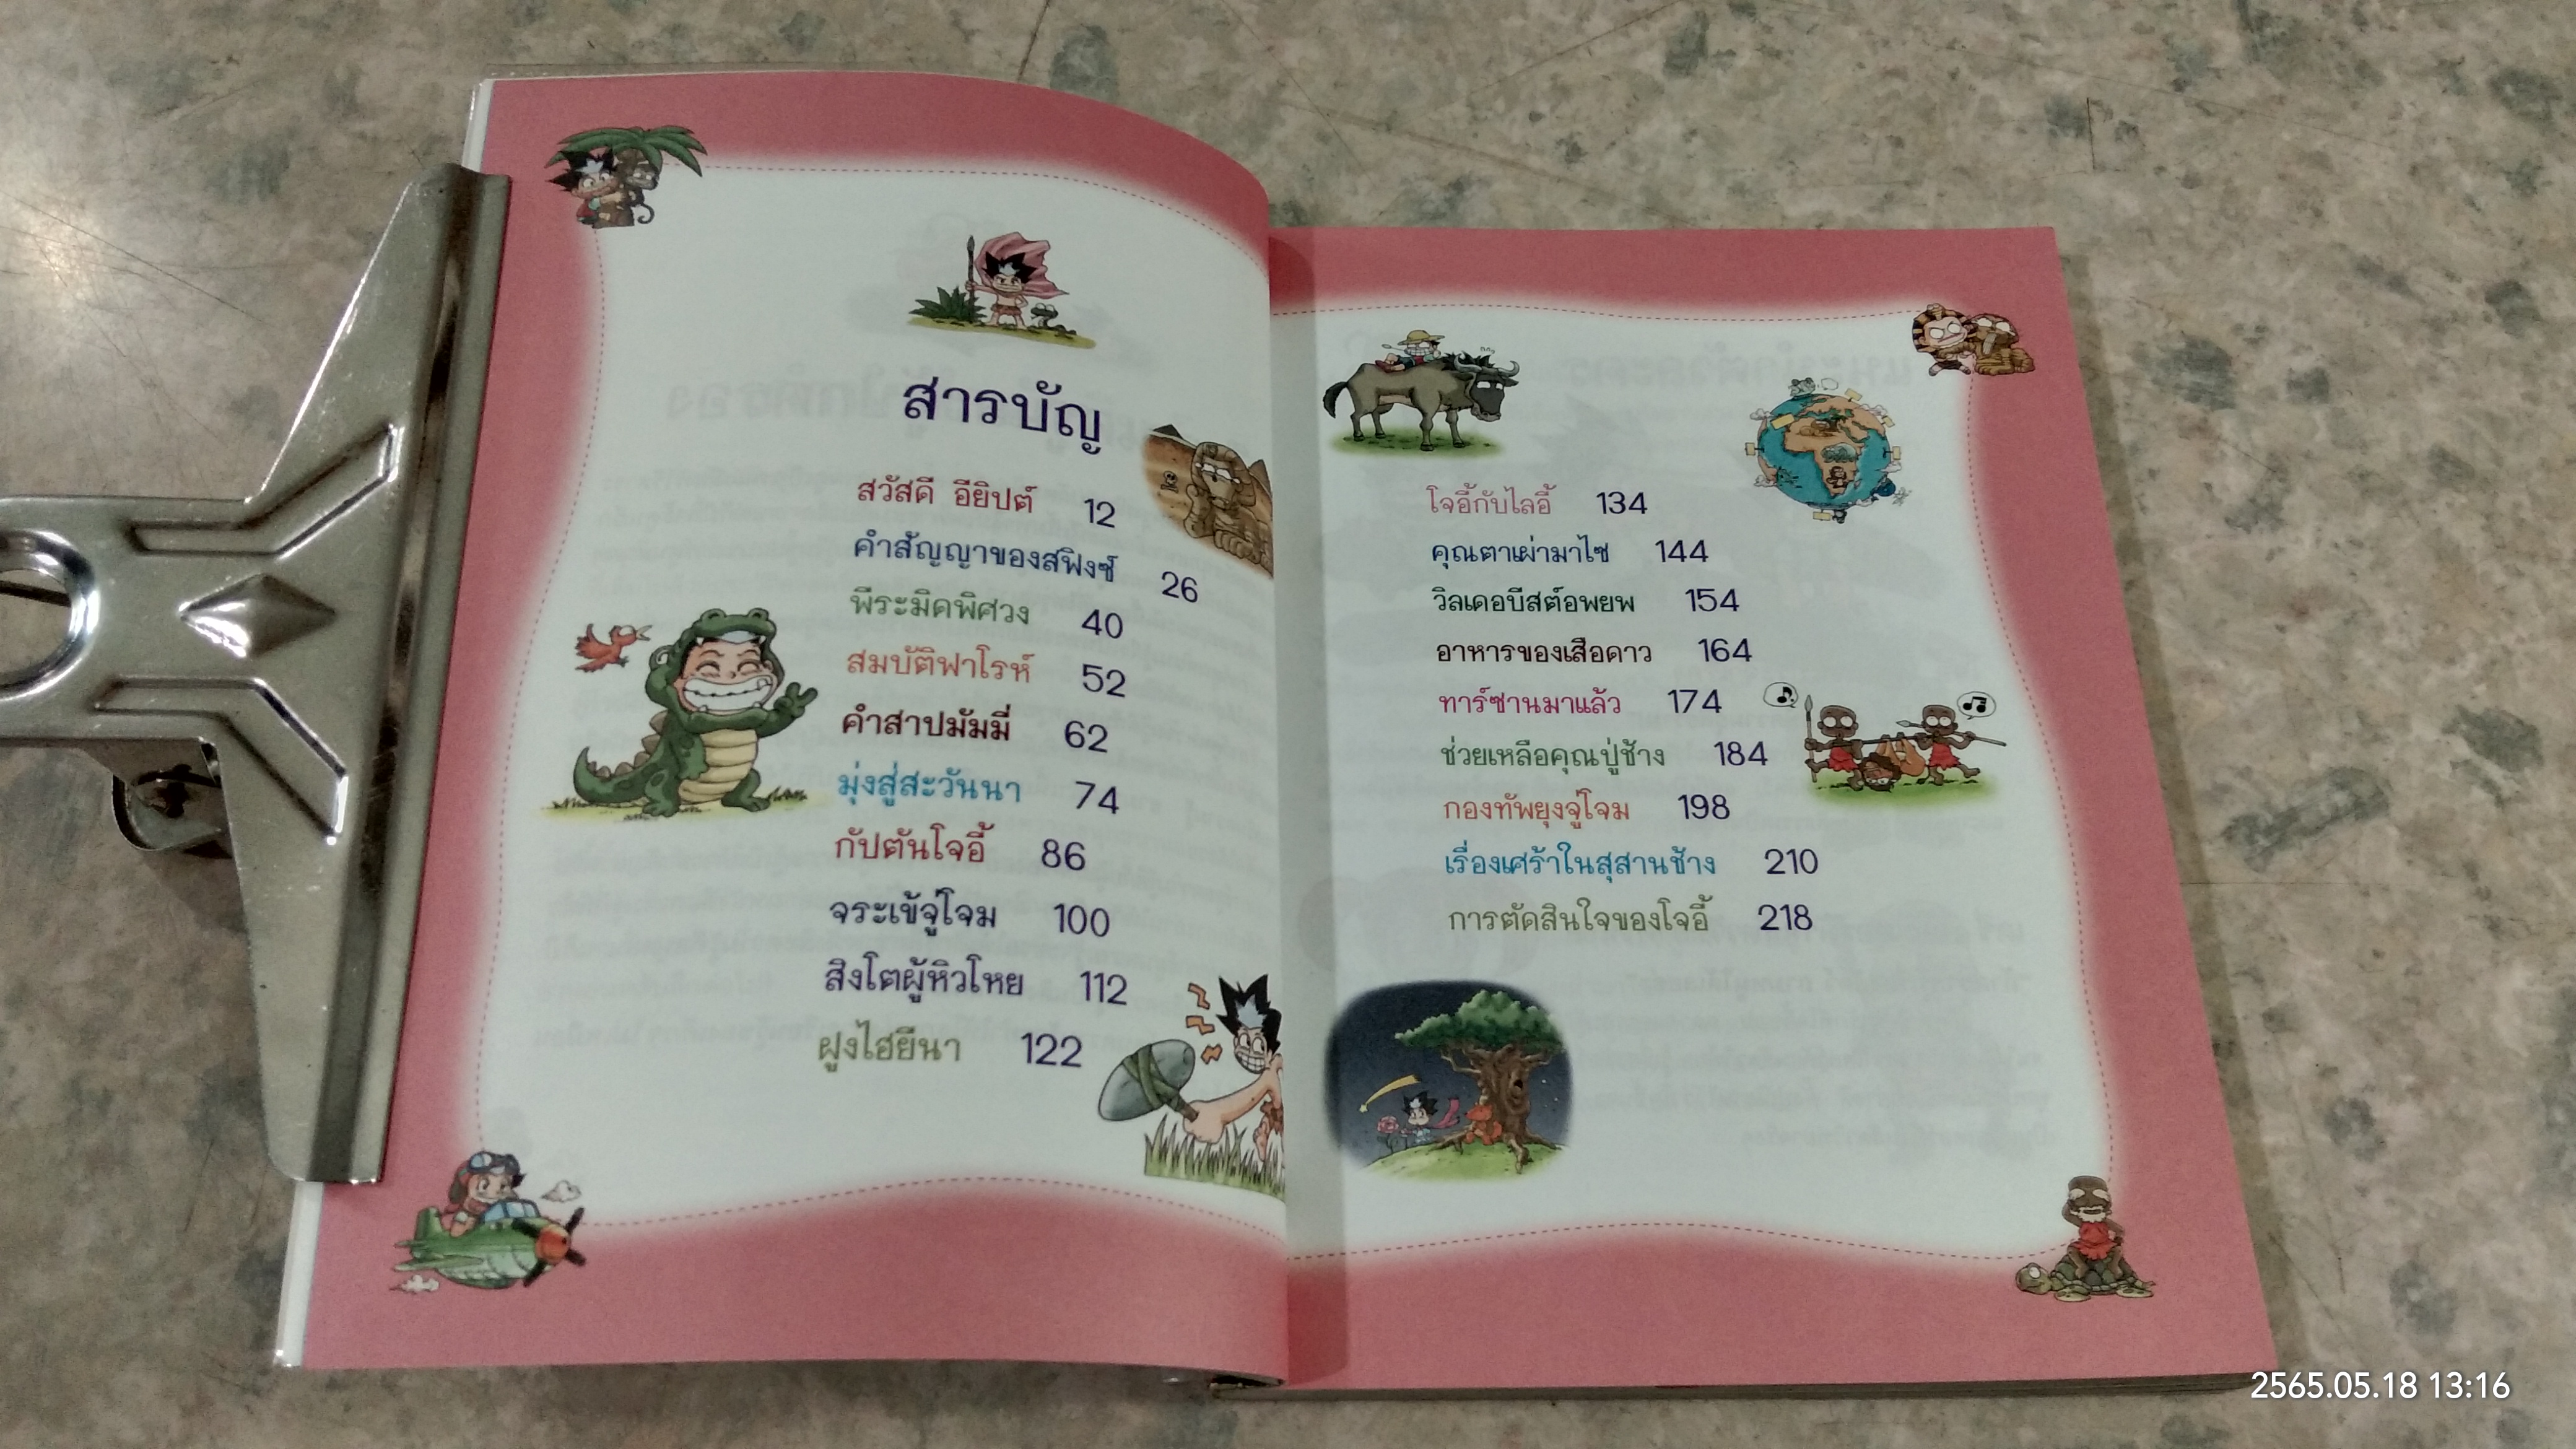 สารบัญ
สวัสดี อียิปต์ 12
คำสัญญาของสฟิงซ์ 26
พีระมิดพิศวง 40
สมบัติฟาโรห์ 52
คำสาปมัมมี่ 62
มุ่งสู่สะวันนา 74
กัปตันโจอี้ 86
จระเข้จู่โจม 100
สิงโตผู้หิวโหย 112
ฝูงไฮยีนา 122
โจอี้กับไลอี้ 134
คุณตาเผ่ามาไซ 144
วิลเดอบีสต์อพยพ 154
อาหารของเสือดาว 164
ทาร์ซานมาแล้ว 174
ช่วยเหลือคุณปู่ช้าง 184
กองทัพยุงจู่โจม 198
เรื่องเศร้าในสุสานช้าง 210
การตัดสินใจของโจอี้ 218
2565.05.18 13:16